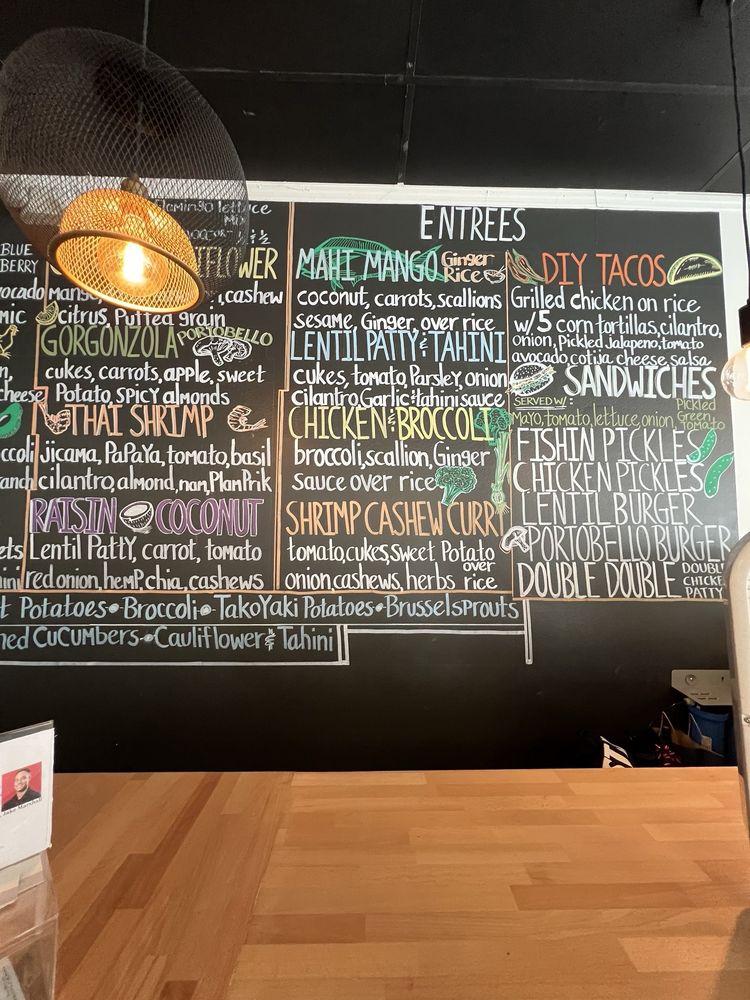 BLUE
BERRY
avocado
mic
cheese
lamingo lettuce
Mix
IFLOWER
mango, cashew
citrus, Puffed grain
GORGONZOLA PORTOBELLO
cukes, carrots, apple, sweet
Potato, SPicy almonds
THAI SHRIMP
jicama, PaPaYa, tomato, basil
cilantro, almond, nam, Plam Prik
RAISIN COCONUT
Lentil Patty, carrot, tomato
red onion, hemp, chia, cashews
ENTREES
MAHI MANGO Ginger Rice
coconut, carrots, scallions
sesame, Ginger, over rice
LENTIL PATTY & TAHINI
cukes, tomato, Parsley, onion
cilantro, Garlic & tahini sauce
CHICKEN & BROCCOLI
broccoli, scallion, Ginger
sauce over rice
SHRIMP CASHEW CURRY
tomato, cukes, sweet Potato
onion, cashews, herbs over rice
DIY TACOS
Grilled chicken on rice
w/5 corn tortillas, cilantro,
onion, Pickled jalapeno, tomato
avocado, cotija cheese, salsa
SANDWICHES
SERVED W/:
MAYO, tomato, lettuce, onion, Pickled Green Tomato
FISH IN PICKLES
CHICKEN PICKLES
LENTIL BURGER
PORTOBELLO BURGER
DOUBLE DOUBLE DOUBLE CHICKEN PATTY
t Potatoes • Broccoli • TakoYaki Potatoes • Brussel sprouts
hed CUCUMbers • Cauliflower & Tahini